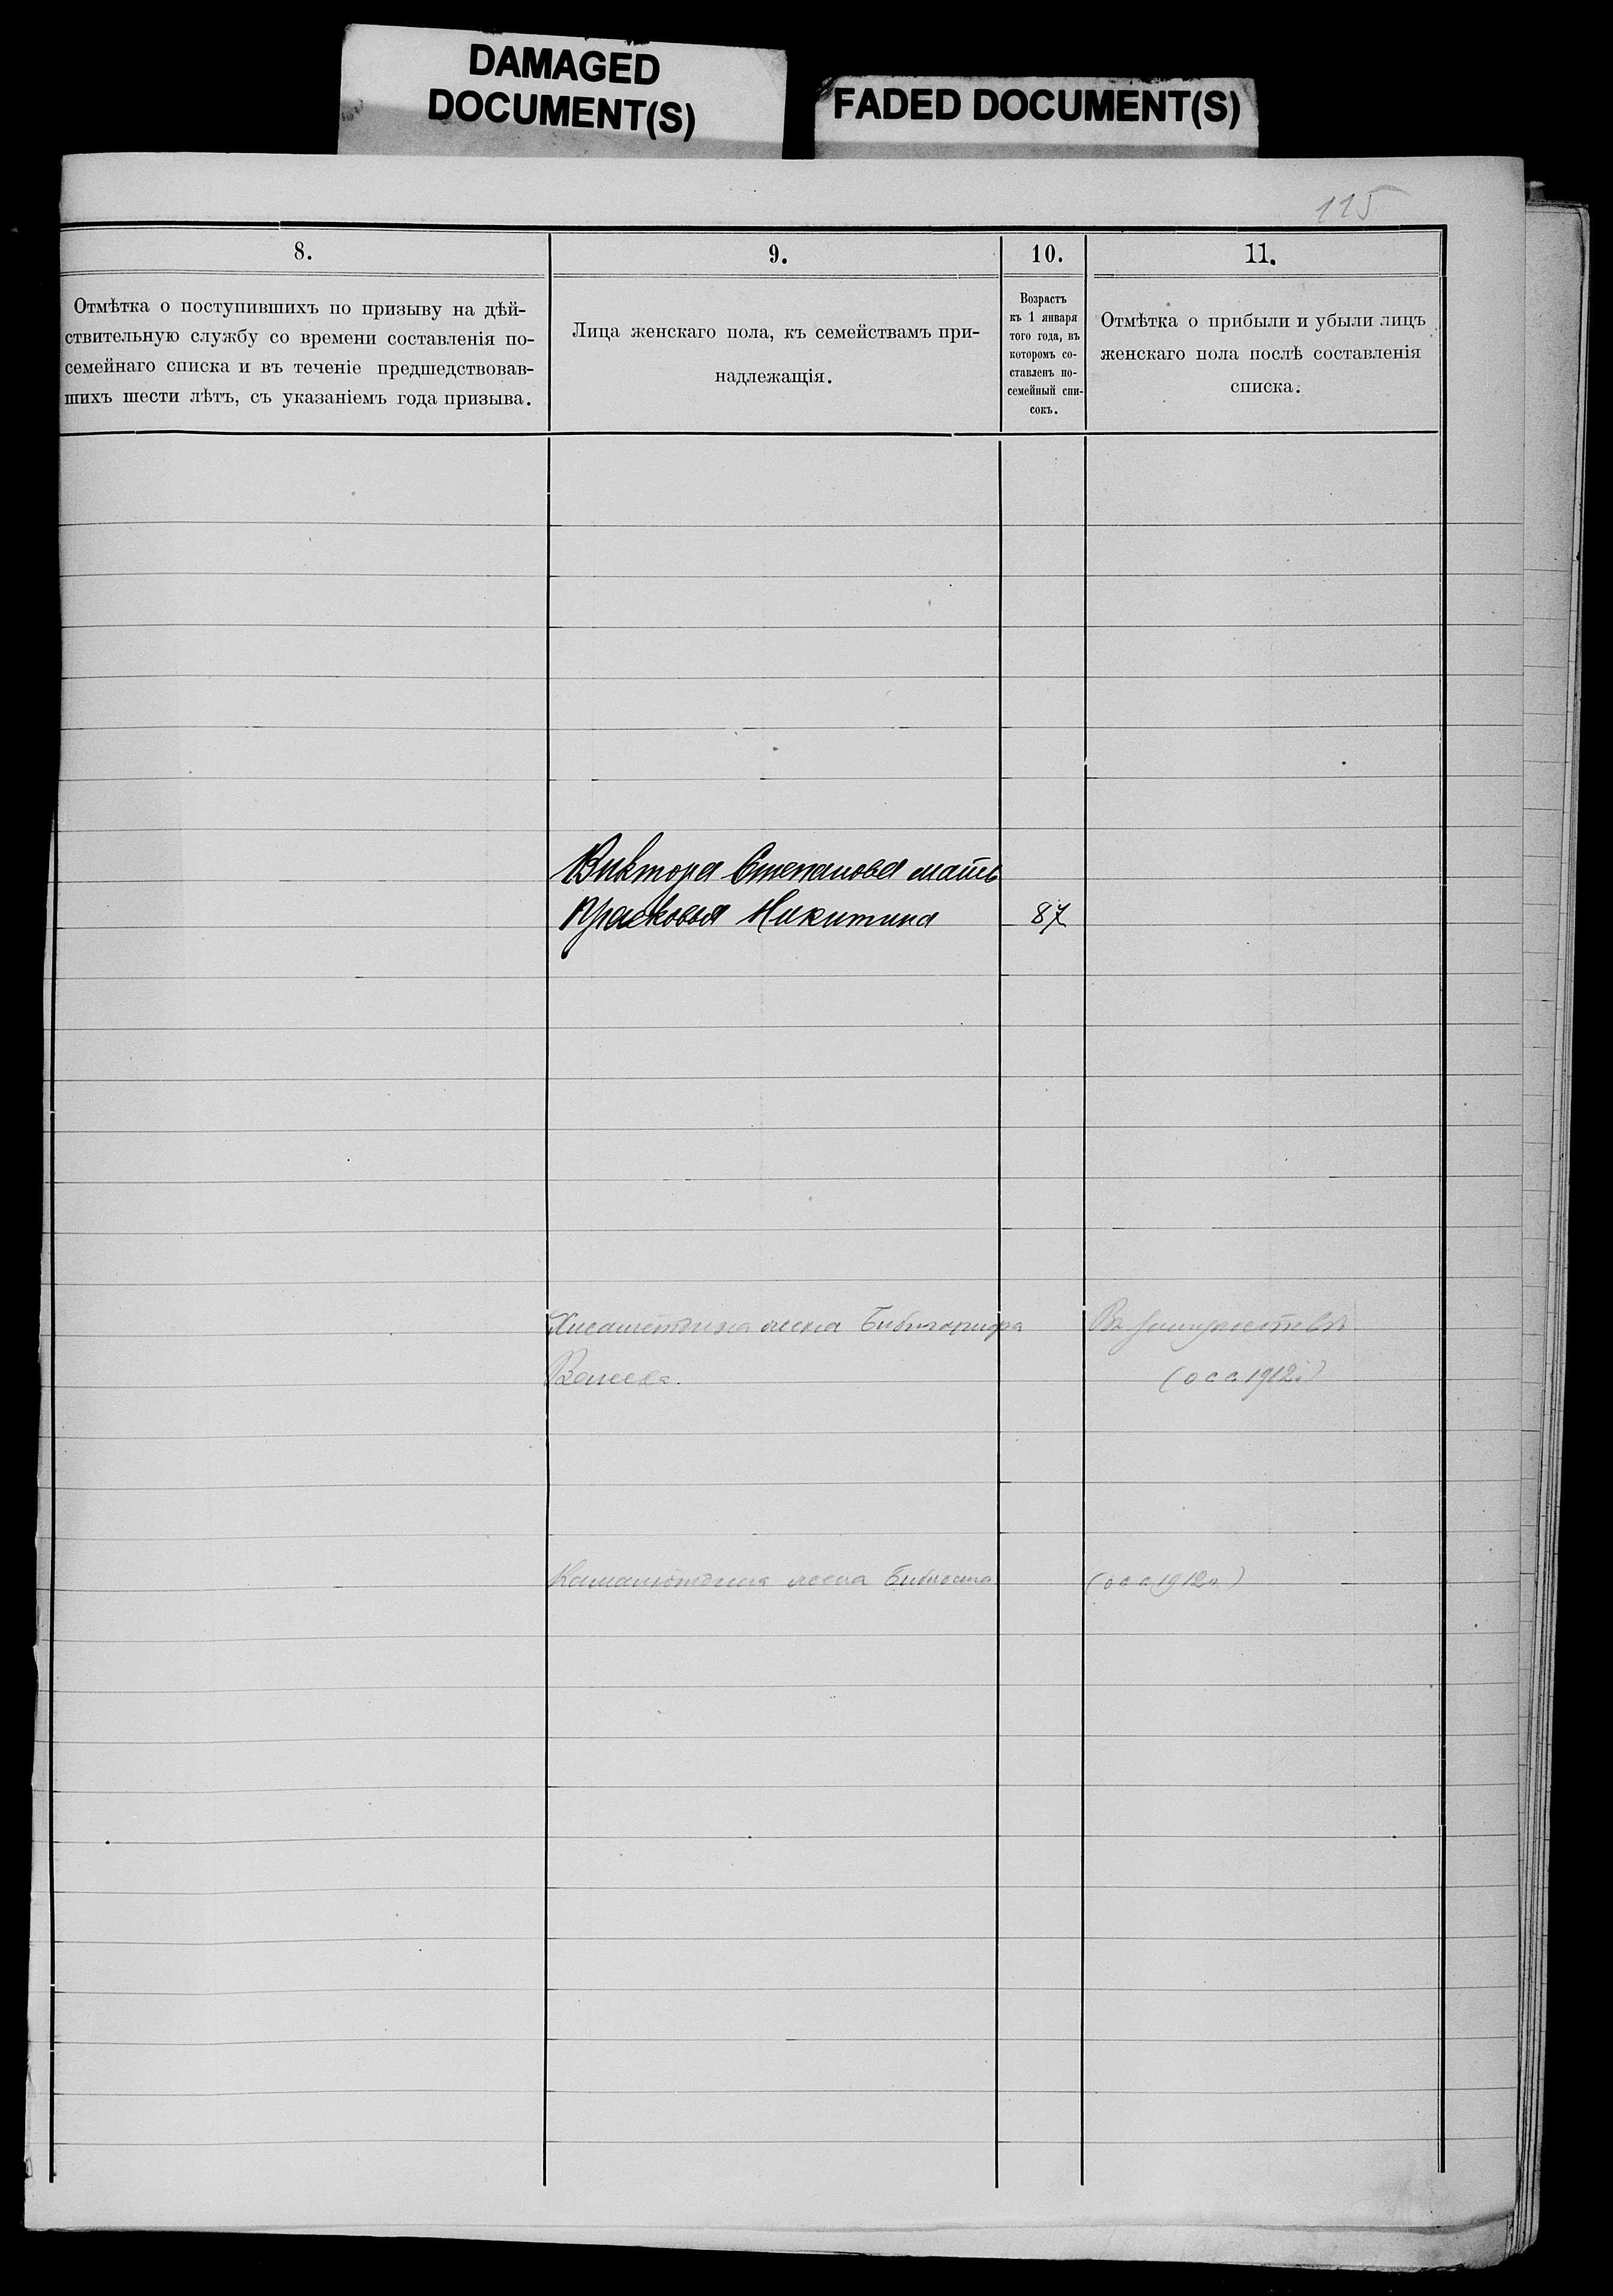 DAMAGED
DOCUMENT(S)
FADED DOCUMENT(S)
115
8.
9.
10.
11.
Отмѣтка о поступившихъ по призыву на дѣй-
ствительную службу со времени составленія по-
семейнаго списка и въ теченіе предшедствовав-
шихъ шести лѣтъ, съ указаніемъ года призыва.
Лица женскаго пола, къ семействамъ при-
надлежащія.
Возрастъ
къ 1 января
того года, въ
которомъ со-
ставленъ по-
семейный спи-
сокъ.
Отмѣтка о прибыли и убыли лицъ
женскаго пола послѣ составленія
списка.
Виктора Степанова мать
Прасковья Никитина
87
жена
Въ замужествѣ
Валеева.
(о с с 1912г)
жена
(о с с 1912г)